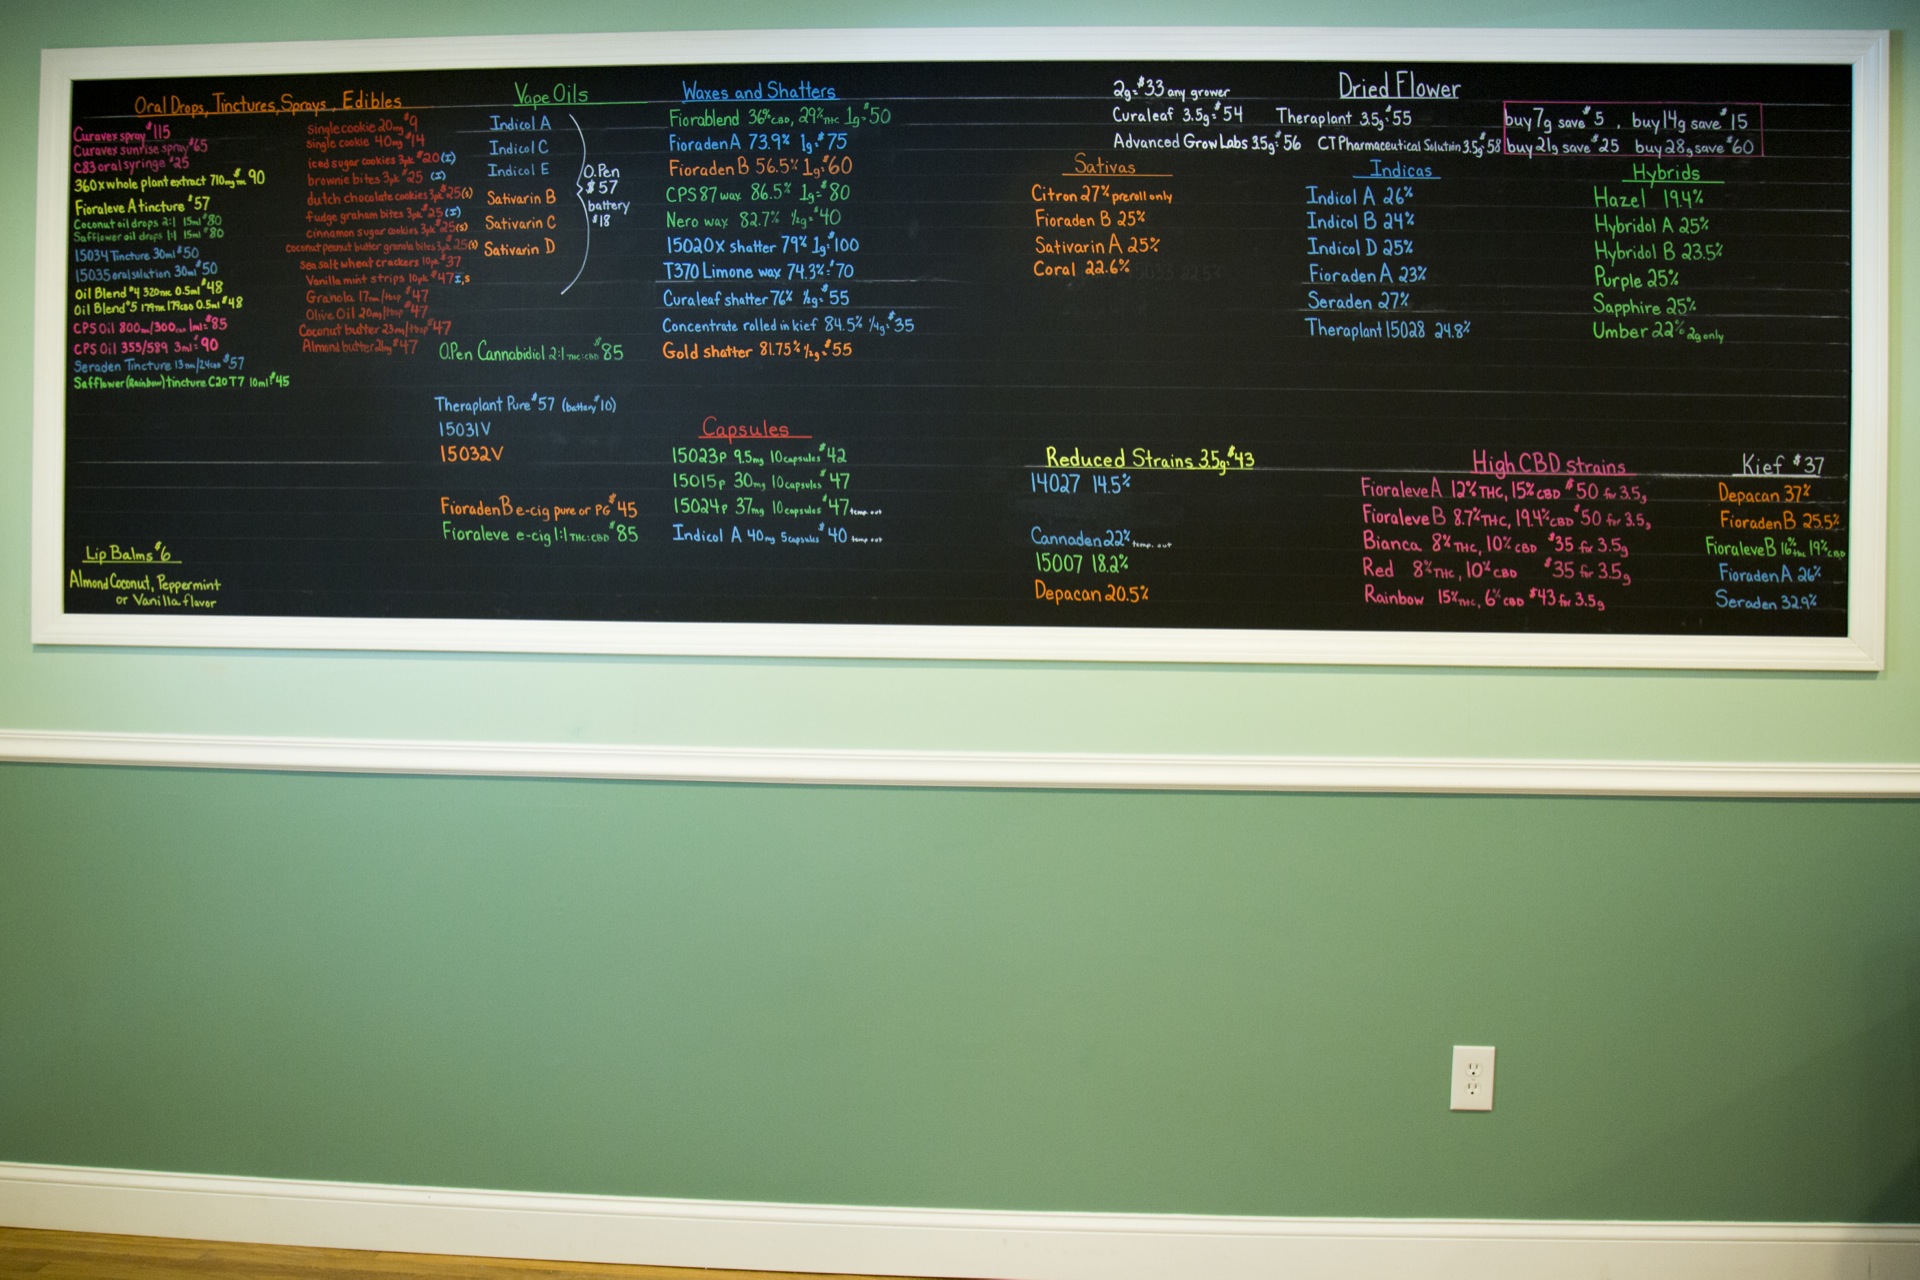 Oral Drops, Tinctures, Sprays, Edibles
Curavex spray $115
Curavex sunrise spray $65
C83 oral syringe $25
360x whole plant extract 710mg $90
Fioraleve A tincture $57
Coconut oil drops 2:1 15ml $80
Safflower oil drops 1:1 15ml $80
15034 Tincture 30ml $50
15035 oral solution 30ml $50
Oil Blend #4 320THC 0.5ml $48
Oil Blend #5 179THC 179CBD 0.5ml $48
CPS Oil 800/300 1ml= $85
CPS Oil 355/589 3ml= $90
Seraden Tincture 13THC/24CBD $57
Safflower (Rainbow) tincture C20T7 10ml $45
single cookie 20mg $9
single cookie 40mg $14
iced sugar cookies 3pk $20 (I)
brownie bites 3pk $25 (I)
dutch chocolate cookies 3pk $25 (S)
fudge graham bites 3pk $25 (I)
cinnamon sugar cookies 3pk $25 (S)
coconut peanut butter granola bites 3pk $25 (S)
sea salt wheat crackers 10pk $37
Vanilla mint strips 10pk $47 I,S
Granola 17mg/tbsp $47
Olive Oil 20mg/tbsp $47
Coconut butter 23mg/tbsp $47
Almond butter 21mg $47
Lip Balms $6
Almond Coconut, Peppermint
or Vanilla flavor
Vape Oils
Indicol A
Indicol C
Indicol E
Sativarin B
Sativarin C
Sativarin D
O.Pen
$57
battery
$18
O.Pen Cannabidiol 2:1 THC:CBD $85
Theraplant Pure $57 (battery $10)
15031V
15032V
Fioraden B e-cig pure or PG $45
Fioraleve e-cig 1:1 THC:CBD $85
Waxes and Shatters
Fiorablend 36% CBD, 29% THC 1g= $50
Fioraden A 73.9% 1g= $75
Fioraden B 56.5% 1g= $60
CPS 87 wax 86.5% 1g= $80
Nero wax 82.7% ½g= $40
15020X shatter 79% 1g= $100
T370 Limone wax 74.3% = $70
Curaleaf shatter 76% ½g= $55
Concentrate rolled in kief 84.5% ¼g= $35
Gold shatter 81.75% ½g= $55
Capsules
15023p 9.5mg 10 capsules $42
15015p 30mg 10 capsules $47
15024p 37mg 10 capsules $47 temp. out
Indicol A 40mg 5 capsules $40 temp. out
Dried Flower
2g= $33 any grower
Curaleaf 3.5g= $54 Theraplant 3.5g= $55
Advanced Grow Labs 3.5g= $56 CT Pharmaceutical Solution 3.5g= $58
buy 7g save $5, buy 14g save $15
buy 21g save $25 buy 28g save $60
Sativas
Citron 27% preroll only
Fioraden B 25%
Sativarin A 25%
Coral 22.6%
Indicas
Indicol A 26%
Indicol B 24%
Indicol D 25%
Fioraden A 23%
Seraden 27%
Theraplant 15028 24.8%
Hybrids
Hazel 19.4%
Hybridol A 25%
Hybridol B 23.5%
Purple 25%
Sapphire 25%
Umber 22% 2g only
Reduced Strains 3.5g= $43
14027 14.5%
Cannaden 22% temp. out
15007 18.2%
Depacan 20.5%
High CBD strains
Fioraleve A 12% THC, 15% CBD $50 for 3.5g
Fioraleve B 8.7% THC, 19.4% CBD $50 for 3.5g
Bianca 8% THC, 10% CBD $35 for 3.5g
Red 8% THC, 10% CBD $35 for 3.5g
Rainbow 15% THC, 6% CBD $43 for 3.5g
Kief $37
Depacan 37%
Fioraden B 25.5%
Fioraleve B 16% THC 19% CBD
Fioraden A 26%
Seraden 32.9%